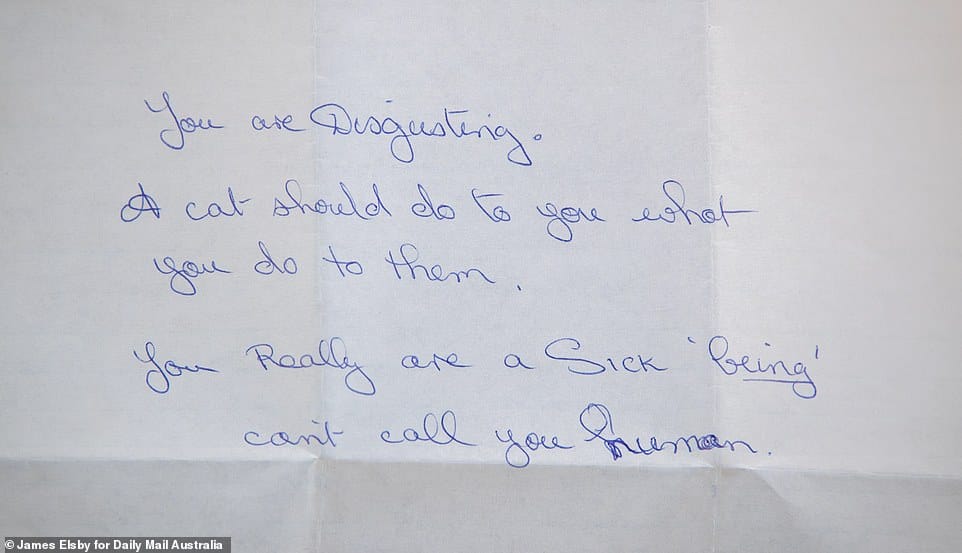 You are Disgusting.
A cat should do to you what
you do to them.
You Really are a Sick 'being'
can't call you human.
©James Elsby for Daily Mail Australia